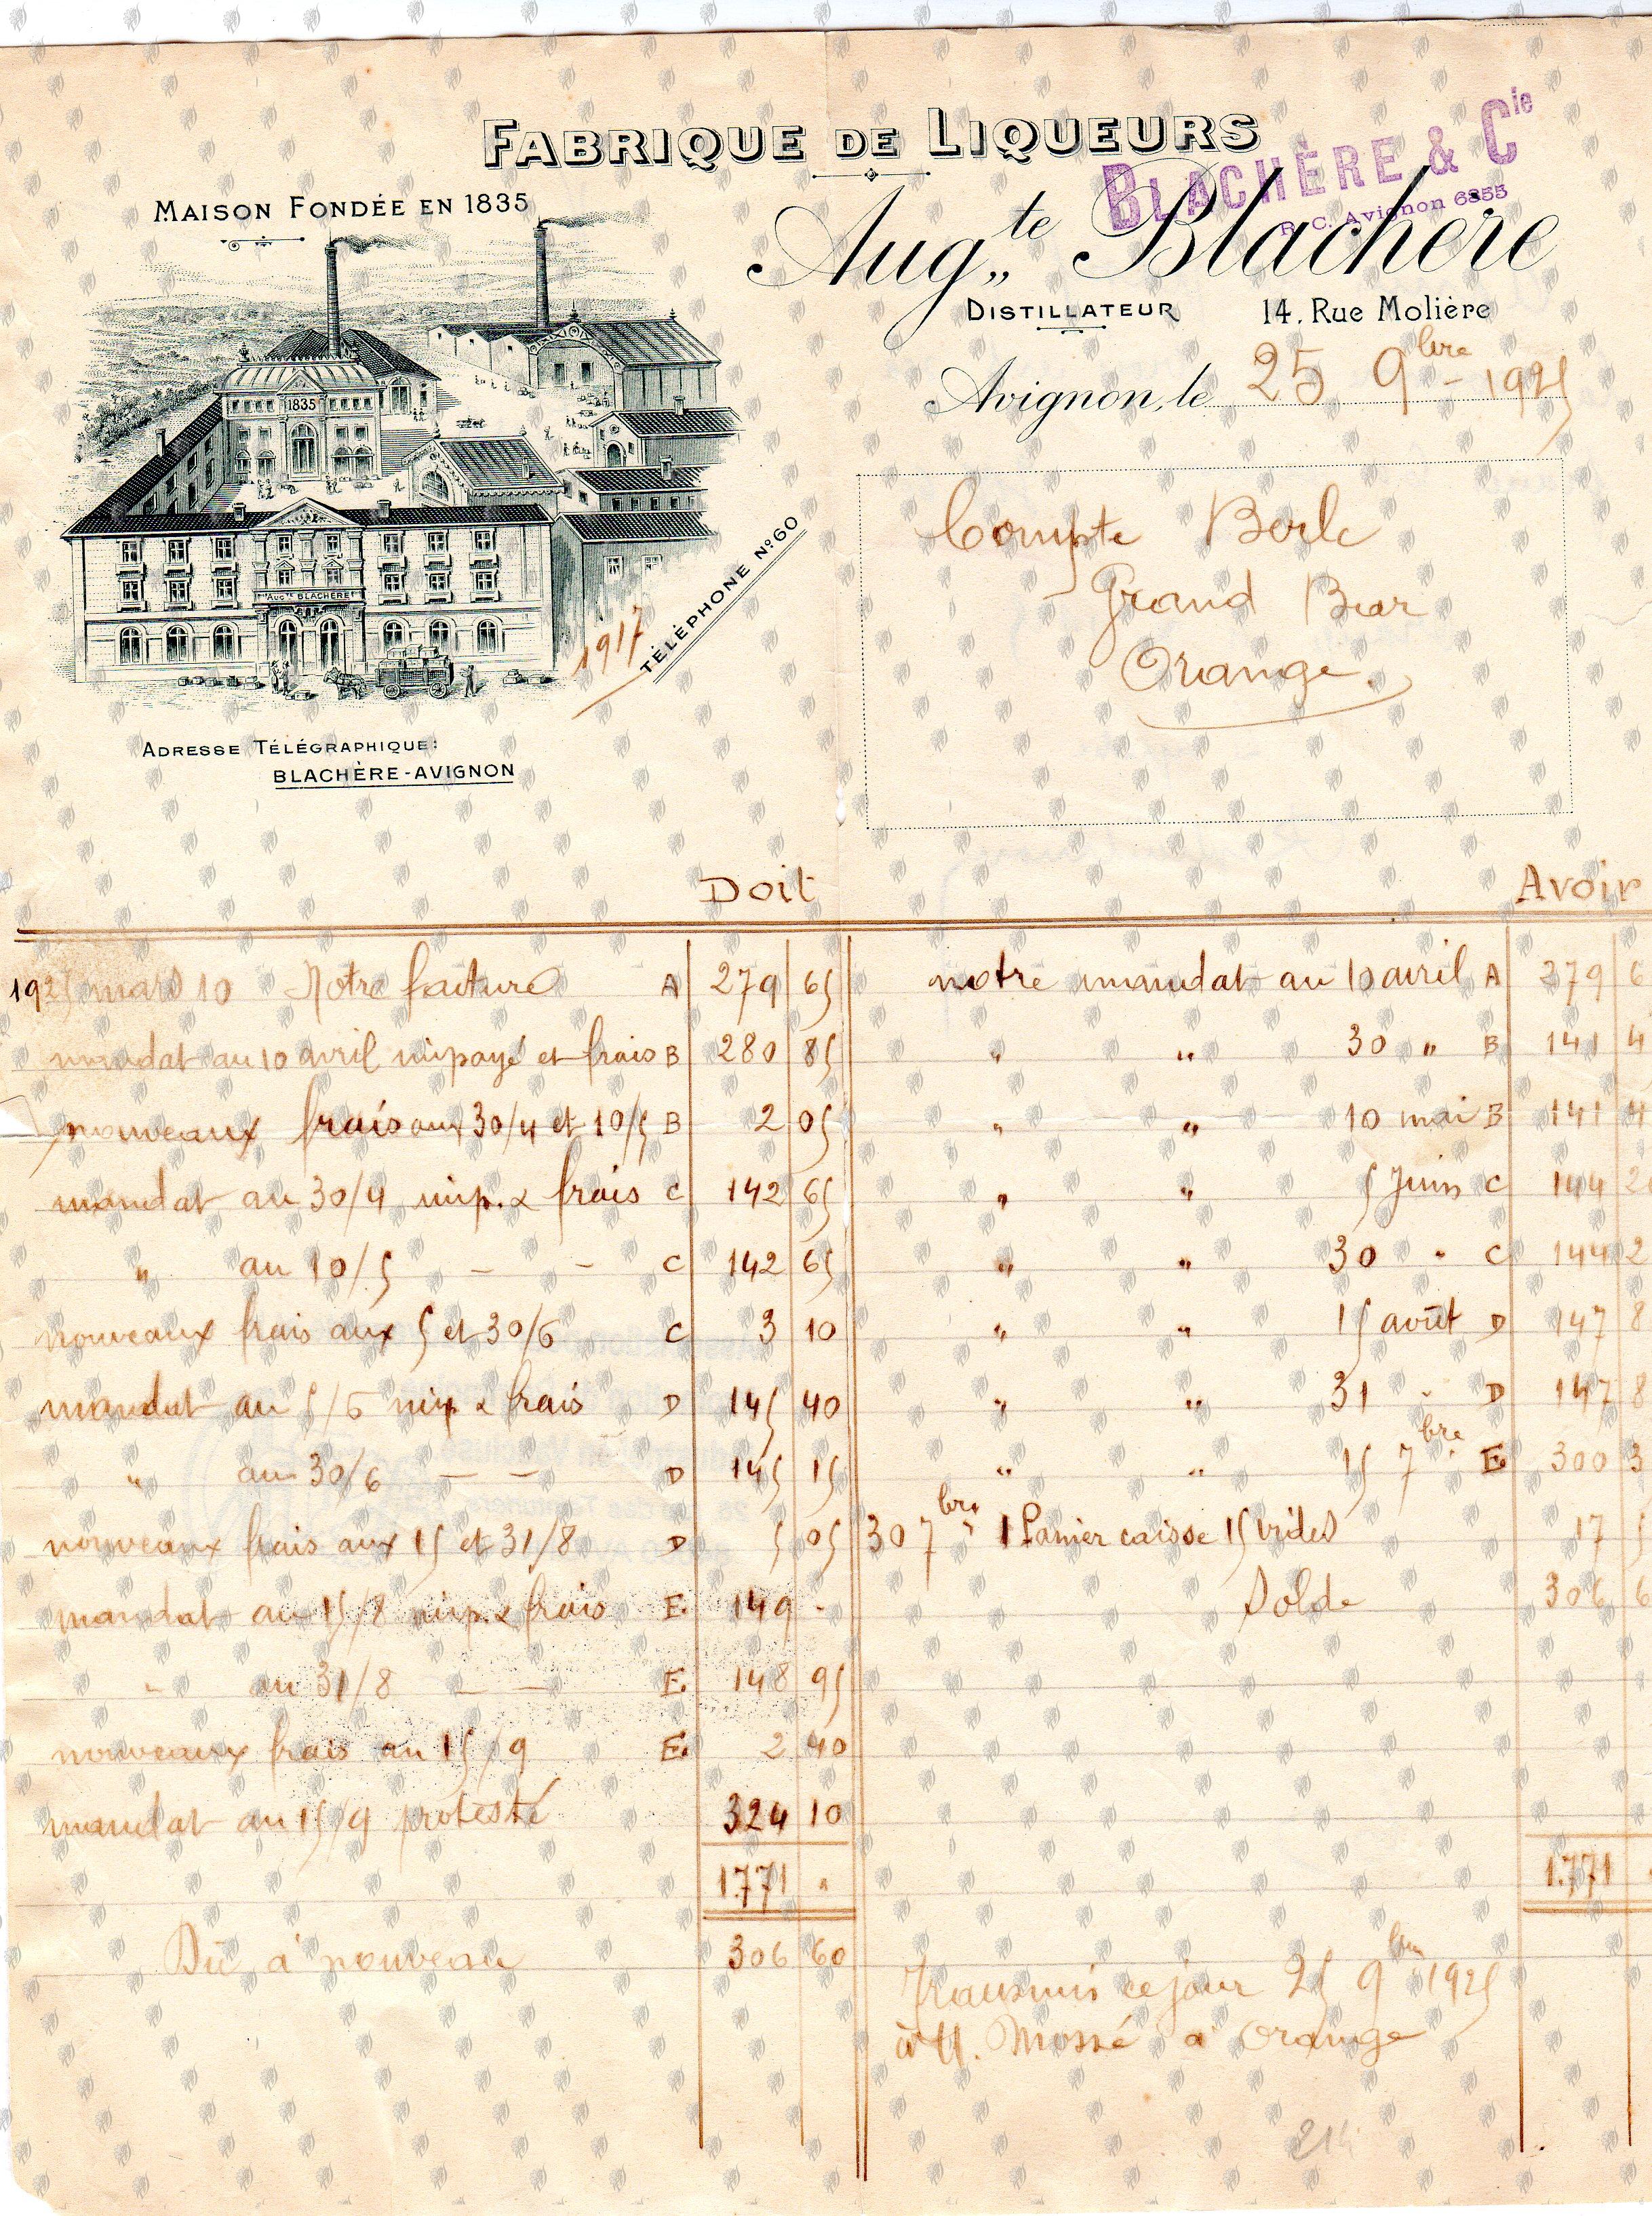 FABRIQUE DE LIQUEURS
BLACHÈRE & Cie
R. C. Avignon 6855
MAISON FONDÉE EN 1835
Augte Blachère
DISTILLATEUR 14, Rue Molière
Avignon, le 25 9bre - 1925
1835
AUGTE BLACHÈRE
TÉLÉPHONE Nº 60
1917
ADRESSE TÉLÉGRAPHIQUE:
BLACHÈRE-AVIGNON
Compte
Grand Bar
Orange
Doit Avoir
1925 mars 10 Notre facture A 279 65 notre mandat au 10 avril A 279 6
mandat au 10 avril impayé et frais B 280 85 " " 30 " B 141 4
nouveaux frais aux 30/4 et 10/5 B 2 05 " " 10 mai B 141 4
mandat au 30/4 imp. & frais C 142 65 " " 5 Juin C 144 2
" au 10/5 - - C 142 65 " " 30 " C 144 2
nouveaux frais aux 5 et 30/6 C 3 10 " " 15 août D 147 8
mandat au 5/6 imp & frais D 145 40 " " 31 " D 147 8
" au 30/6 - - D 145 15 " " 15 7bre E 300 3
nouveaux frais aux 15 et 31/8 D 5 05 30 7bre " 1 Panier caisse 15 vides 17 5
mandat au 15/8 imp. & frais E. 149 - Solde 306 6
" au 31/8 - - E. 148 95
nouveaux frais au 15/9 E. 2 40
mandat au 15/9 protesté 324 10
1771 " 1.771
Dû à nouveau 306 60
Transmis ce jour 25 9bre 1925
à M. Mossé à Orange